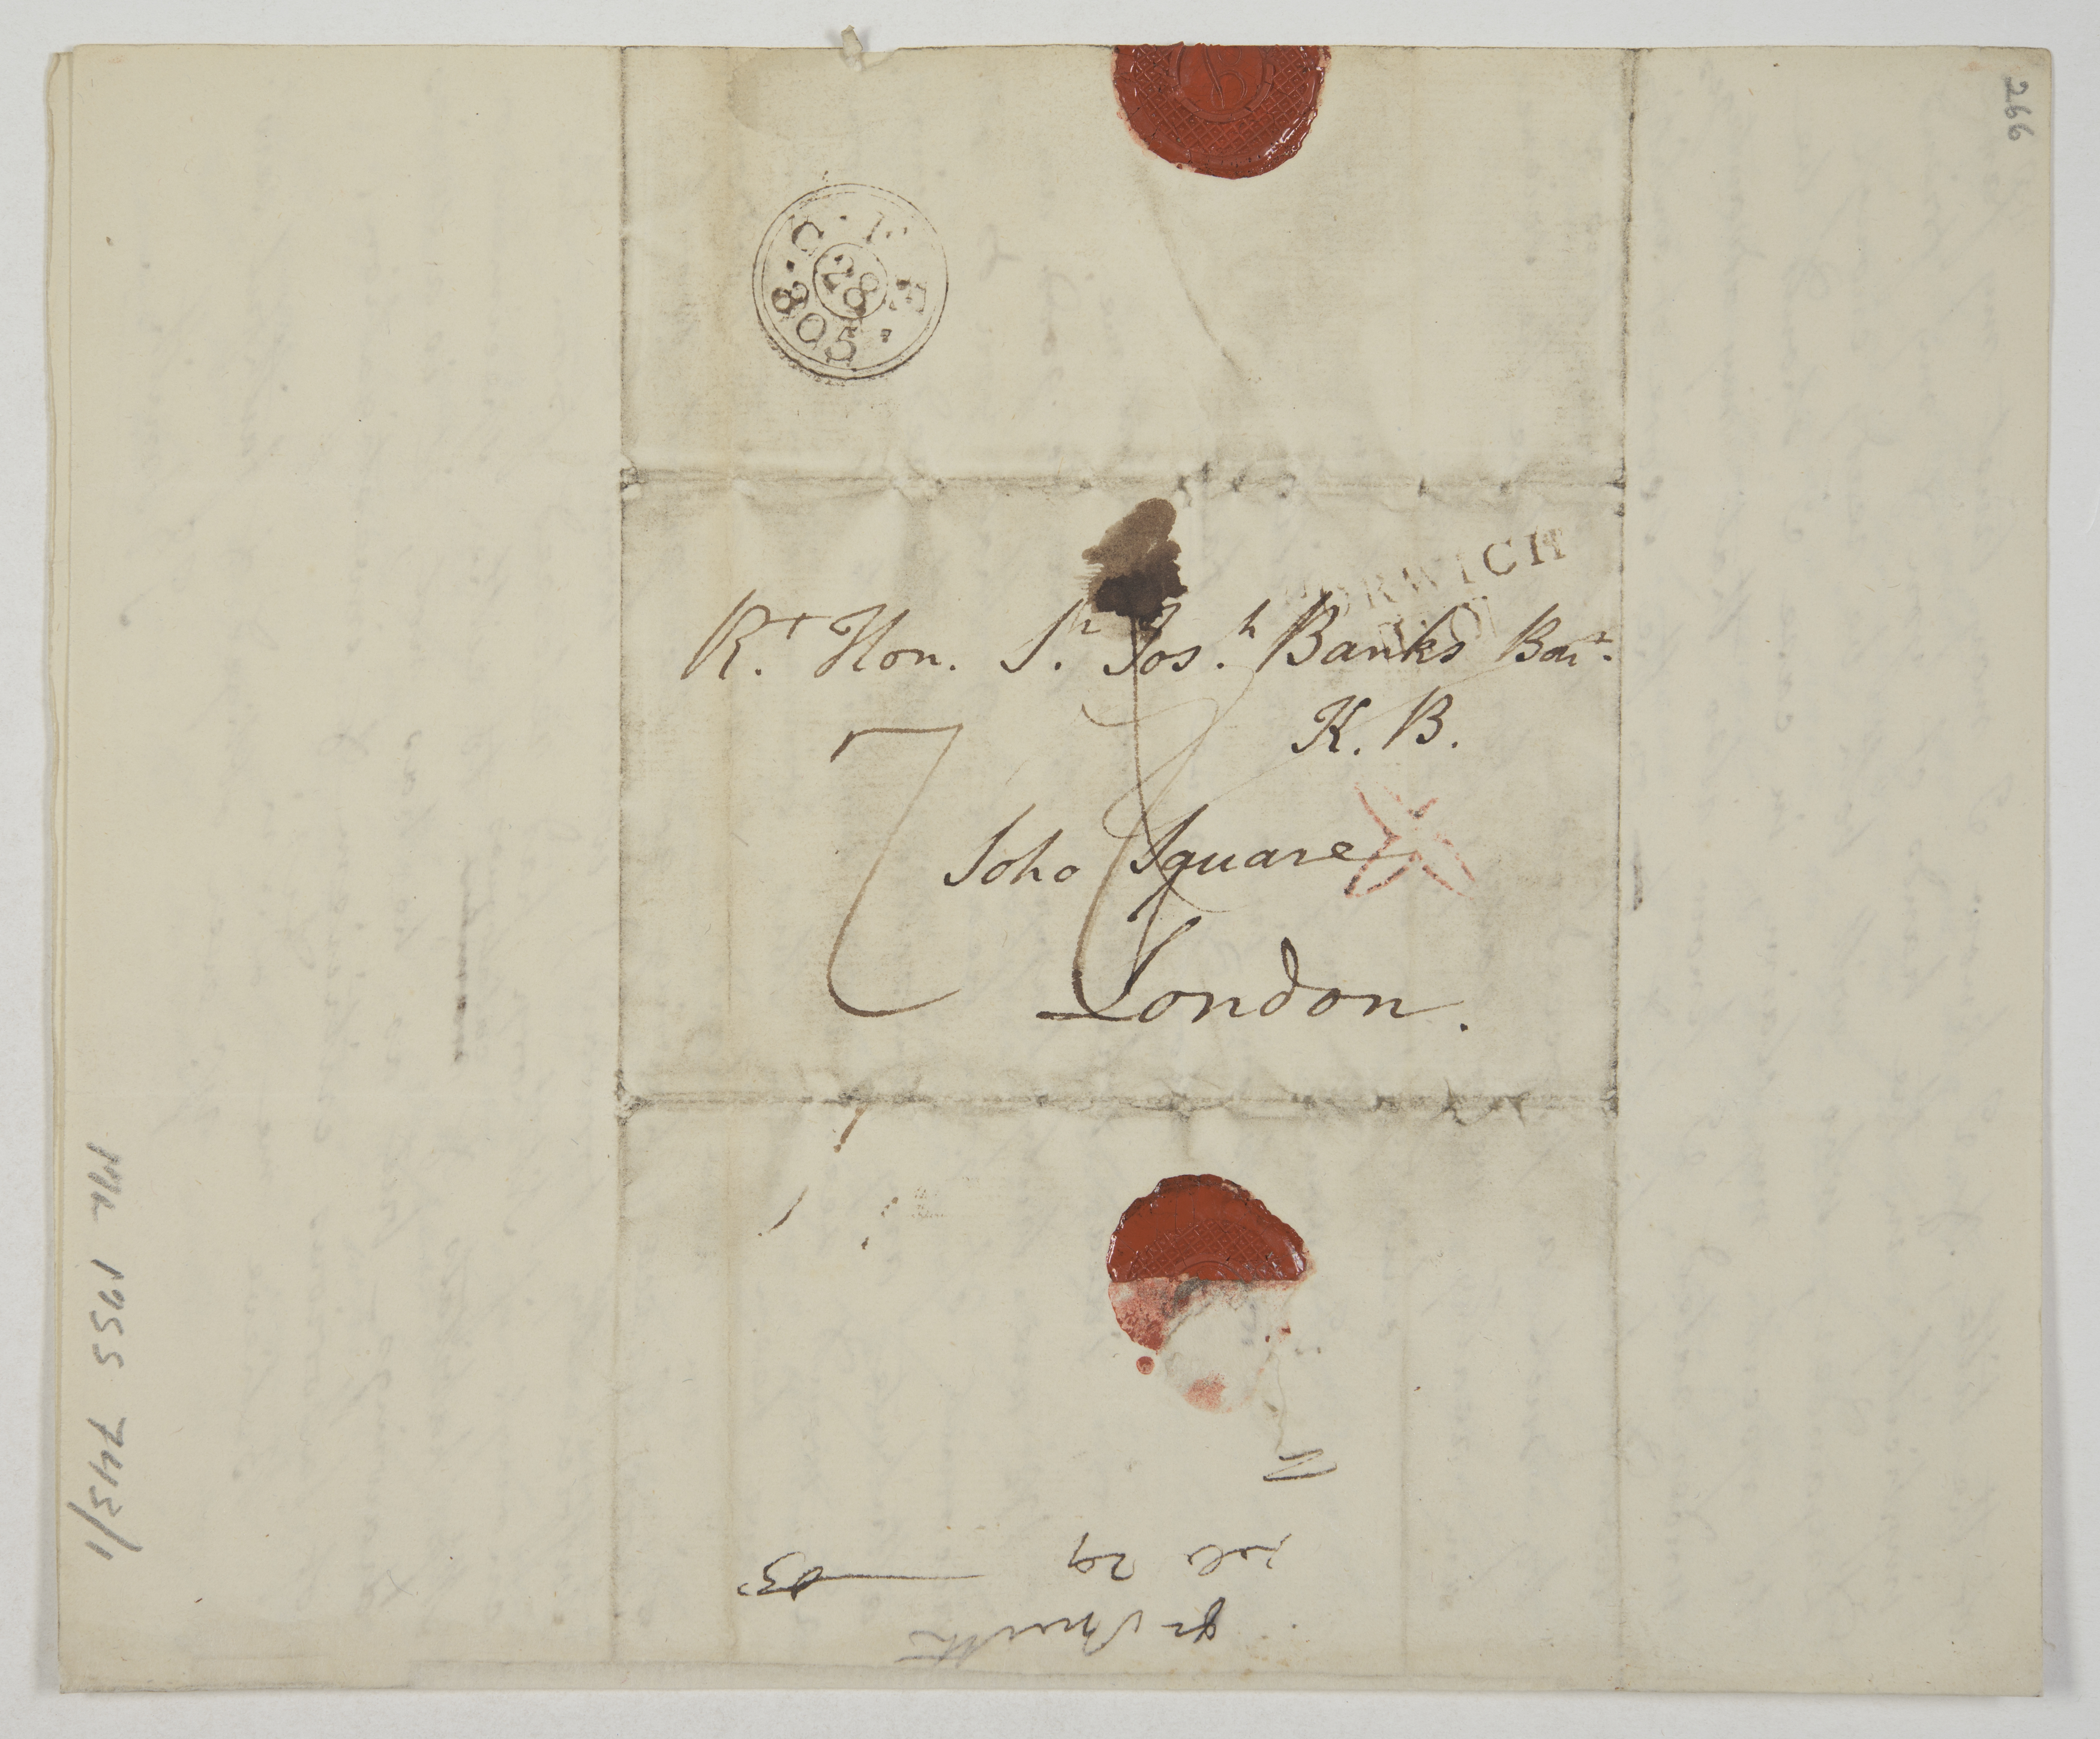 266
C
FE
28
805
NORWICH
R.t Hon. S.r Jos.h Banks Bar.t
K. B.
7
Soho Square
London.
ML 1955 743/1
Dr Smith
29
05